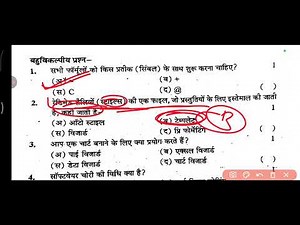 बहुविकल्पीय प्रश्न–
1. सभी फॉर्मूलों को किस प्रतीक (सिंबल) के साथ शुरू करना चाहिए? 1
(अ) = (ब) +
(स) C (द) @ ( )
2. शैलियों (स्टाइल्स) की एक फाइल, जो प्रस्तुतियों के लिए इस्तेमाल की जाती
है, कही जाती है 1
(अ) ऑटो स्टाइल (ब) टेम्पलेट
(स) विजार्ड (द) प्रि फोर्मेटिंग ( )
3. आप एक चार्ट बनाने के लिए क्या प्रयोग करते हैं? 1
(अ) पाई विजार्ड (ब) एक्सल विजार्ड
(स) डेटा विजार्ड (द) चार्ट विजार्ड ( )
4. सॉफ्टवेयर चोरी की मिथि क्या है?